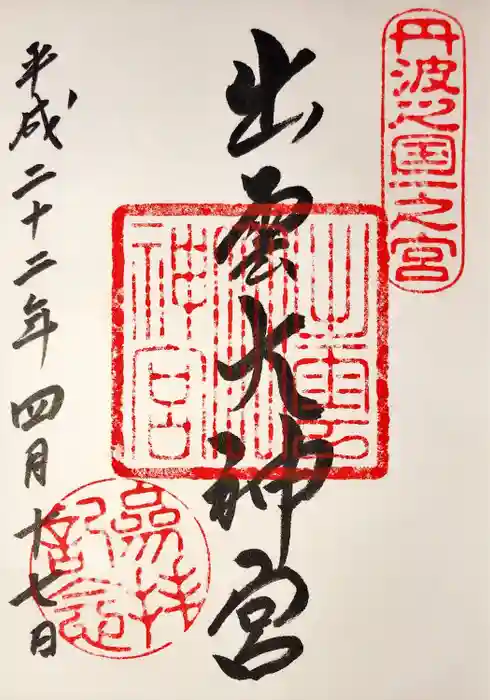 丹波之國一之宮
出雲大神宮
平成二十二年四月十七日
參拝
記念